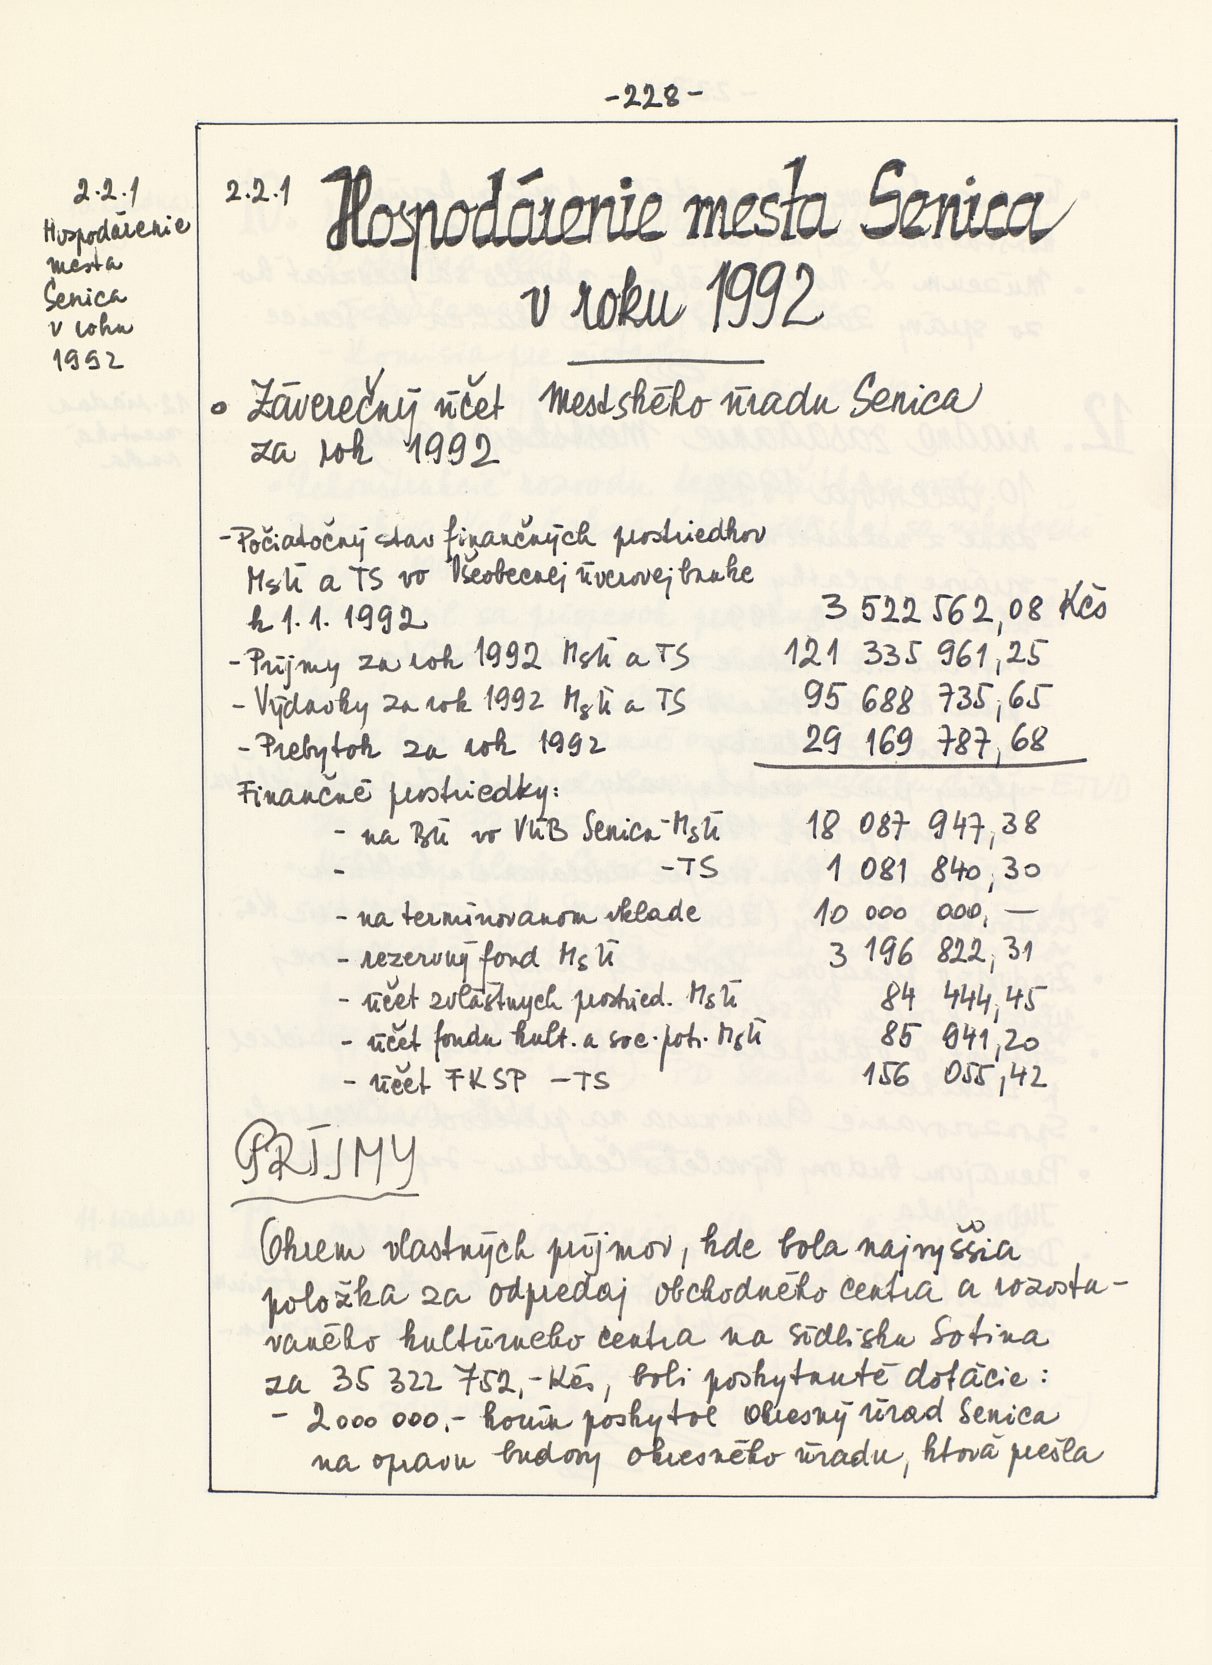 -228-
2.2.1
Hospodárenie
mesta
Senica
v roku
1992
2.2.1 Hospodárenie mesta Senica
v roku 1992
• Záverečný účet Mestského úradu Senica
za rok 1992
- Počiatočný stav finančných prostriedkov
MsÚ a TS vo Všeobecnej úverovej banke
k 1.1.1992. 3 522 562,08 Kčs
- Príjmy za rok 1992 MsÚ a TS 121 335 961,25
- Výdavky za rok 1992 MsÚ a TS 95 688 735,65
- Prebytok za rok 1992 29 169 787,68
Finančné prostriedky:
- na BÚ vo VÚB Senica - MsÚ 18 087 947,38
- - TS 1 081 840,30
- na termínovanom vklade 10 000 000,—
- rezervný fond MsÚ 3 196 822,31
- účet zvláštnych prostried. MsÚ 84 444,45
- účet fondu kult. a soc. potr. MsÚ 85 941,20
- účet FKSP - TS 156 055,42
PRÍJMY
Okrem vlastných príjmov, kde bola najvyššia
položka za odpredaj obchodného centra a rozosta-
vaného kultúrneho centra na sídlisku Sotina
za 35 322 752,- Kčs, boli poskytnuté dotácie:
- 2 000 000.- korún poskytol Okresný úrad Senica
na opravu budovy okresného úradu, ktorá prešla